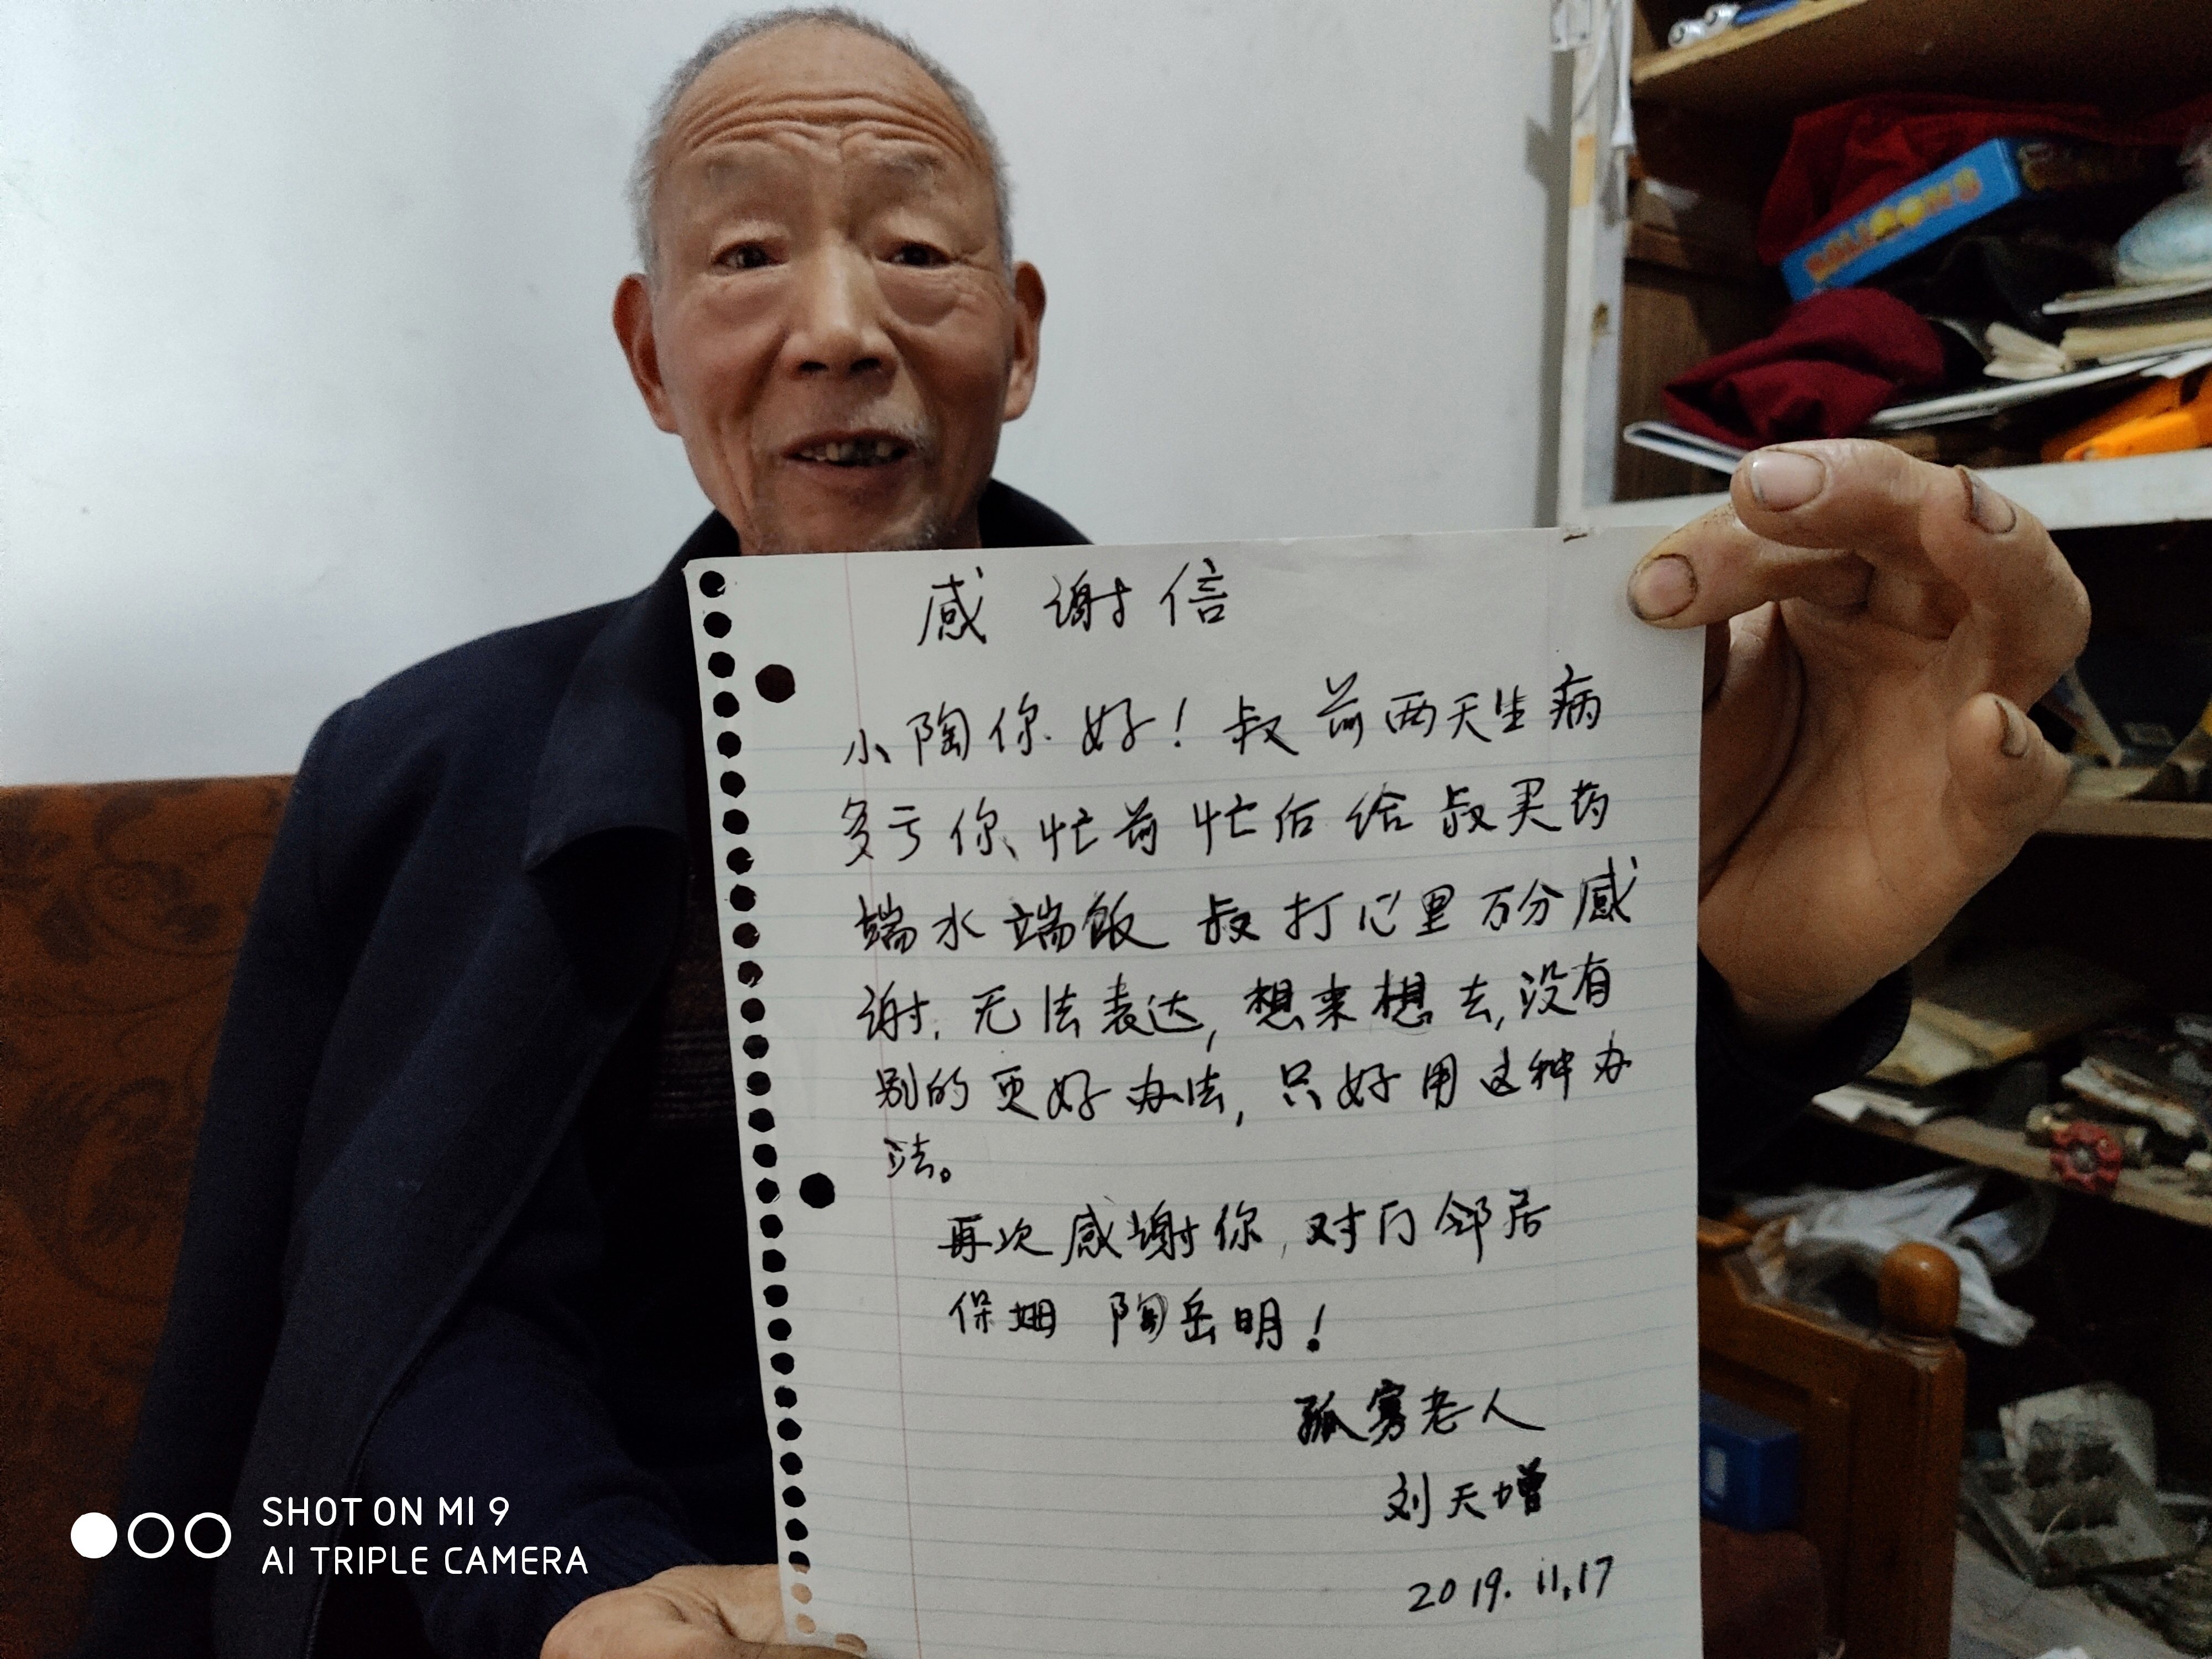 BALLOONS
感谢信
小陶你好！叔前两天生病
多亏你忙前忙后给叔买药
端水端饭 叔打心里万分感
谢，无法表达，想来想去，没有
别的更好办法，只好用这种办
法。
再次感谢你，对门邻居
保姆 陶岳明！
孤寡老人
刘天增
2019.11.17
SHOT ON MI 9
AI TRIPLE CAMERA